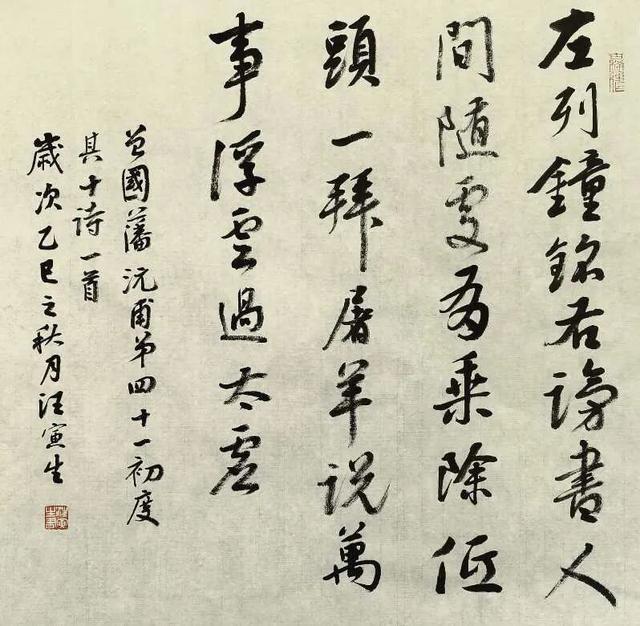 左列鐘銘右謗書人
間随處有乘除低
頭一拜屠羊説萬
事浮雲過太虚
曾國藩沅甫弟四十一初度
其十詩一首
歲次乙巳之秋月汪寅生